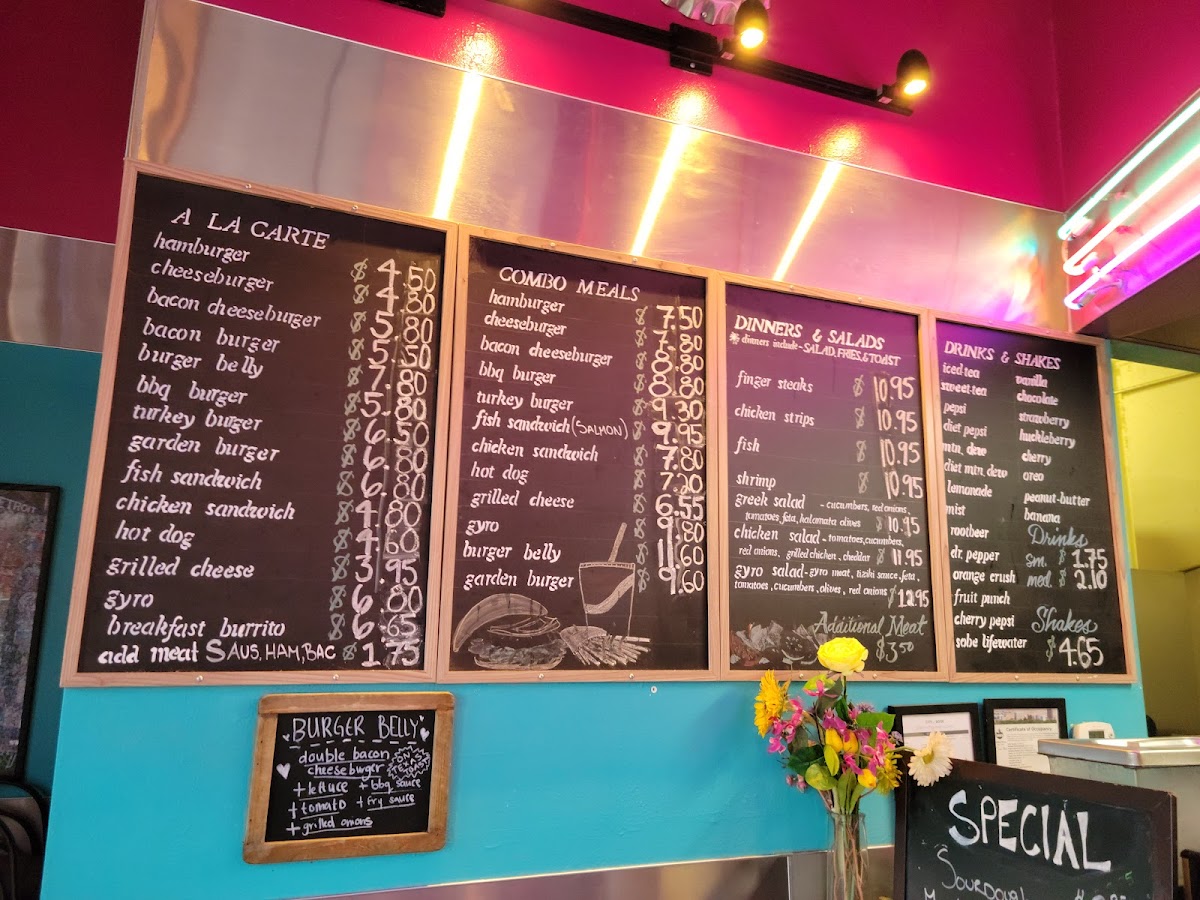 A LA CARTE
hamburger $ 4.50
cheeseburger $ 4.80
bacon cheeseburger $ 5.80
bacon burger $ 5.50
burger belly $ 7.80
bbq burger $ 5.80
turkey burger $ 6.50
garden burger $ 6.80
fish sandwich $ 6.80
chicken sandwich $ 4.80
hot dog $ 4.60
grilled cheese $ 3.95
gyro $ 6.80
breakfast burrito $ 6.65
add meat SAUS, HAM, BAC $ 1.75
COMBO MEALS
hamburger $ 7.50
cheeseburger $ 7.80
bacon cheeseburger $ 8.80
bbq burger $ 8.80
turkey burger $ 9.30
fish sandwich (SALMON) $ 9.95
chicken sandwich $ 7.80
hot dog $ 7.20
grilled cheese $ 6.55
gyro $ 9.80
burger belly $ 11.60
garden burger $ 9.60
DINNERS & SALADS
* dinners include - SALAD, FRIES, & TOAST
finger steaks $ 10.95
chicken strips $ 10.95
fish $ 10.95
shrimp $ 10.95
greek salad - cucumbers, red onions,
tomatoes, feta, kalamata olives $ 10.95
chicken salad - tomatoes, cucumbers,
red onions, grilled chicken, cheddar $ 11.95
gyro salad - gyro meat, tiziki sauce, feta,
tomatoes, cucumbers, olives, red onions $ 12.95
Additional Meat
$3.50
DRINKS & SHAKES
iced tea
sweet tea
pepsi
diet pepsi
mtn. dew
diet mtn. dew
lemonade
mist
rootbeer
dr. pepper
orange crush
fruit punch
cherry pepsi
sobe lifewater
vanilla
chocolate
strawberry
huckleberry
cherry
oreo
peanut-butter
banana
Drinks
sm. $ 1.75
med. $ 2.10
Shakes
$ 4.65
BURGER BELLY
double bacon
cheeseburger
ON TEXAS TOAST
+ lettuce + bbq sauce
+ tomato + fry sauce
+ grilled onions
SPECIAL